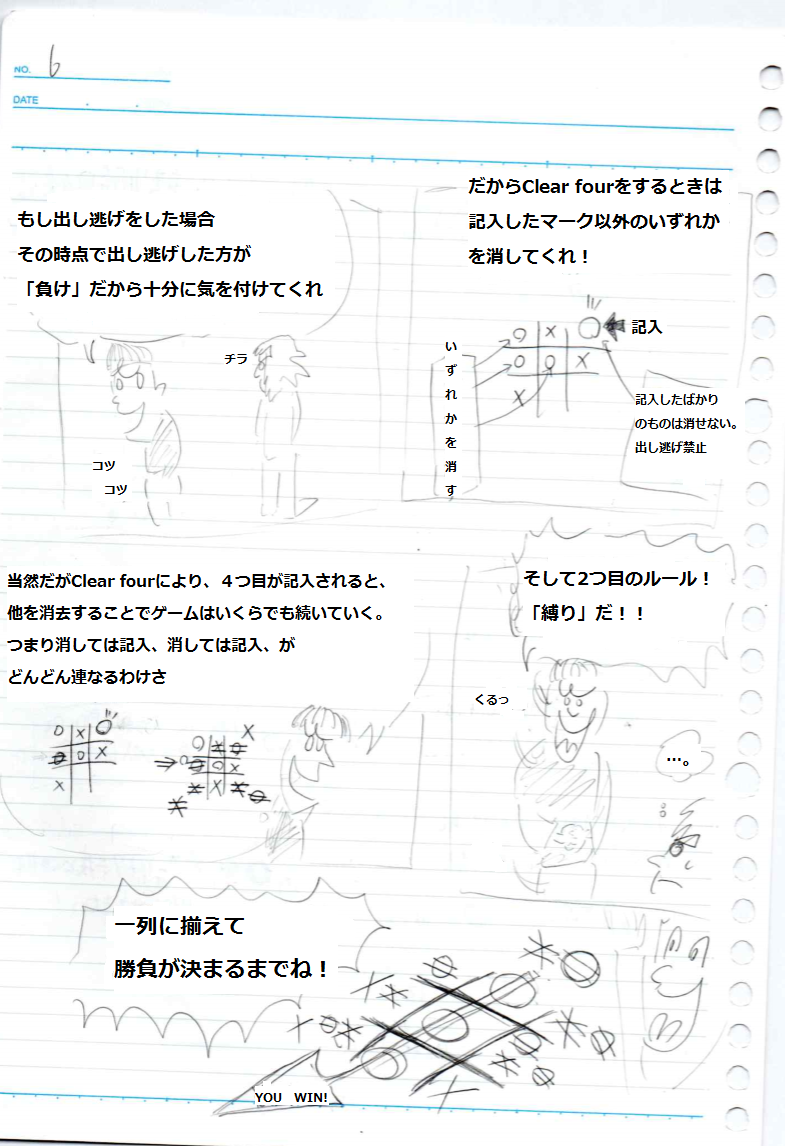 NO. 6
DATE
だからClear fourをするときは
記入したマーク以外のいずれか
を消してくれ！
記入
いずれかを消す
記入したばかり
のものは消せない。
出し逃げ禁止
もし出し逃げをした場合
その時点で出し逃げした方が
「負け」だから十分に気を付けてくれ
チラ
コツ
コツ
そして2つ目のルール！
「縛り」だ！！
くるっ
…。
当然だがClear fourにより、４つ目が記入されると、
他を消去することでゲームはいくらでも続いていく。
つまり消しては記入、消しては記入、が
どんどん連なるわけさ
一列に揃えて
勝負が決まるまでね！
YOU WIN!